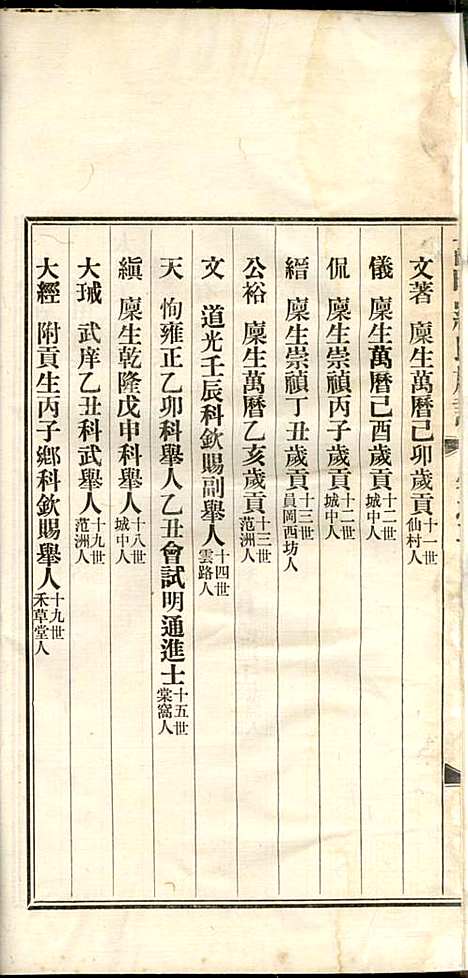 文著 廩生萬曆己卯歲貢十一世仙村人
儀 廩生萬曆己酉歲貢十二世城中人
侃 廩生崇禎丙子歲貢十二世城中人
縉 廩生崇禎丁丑歲貢十三世員岡西坊人
公裕 廩生萬曆乙亥歲貢十三世范洲人
文 道光壬辰科欽賜副舉人十四世雲路人
天恂 雍正乙卯科舉人乙丑會試明通進士十五世棠窩人
縝 廩生乾隆戊申科舉人十八世城中人
大珹 武庠乙丑科武舉人十九世范洲人
大經 附貢生丙子鄉科欽賜舉人十九世禾草堂人